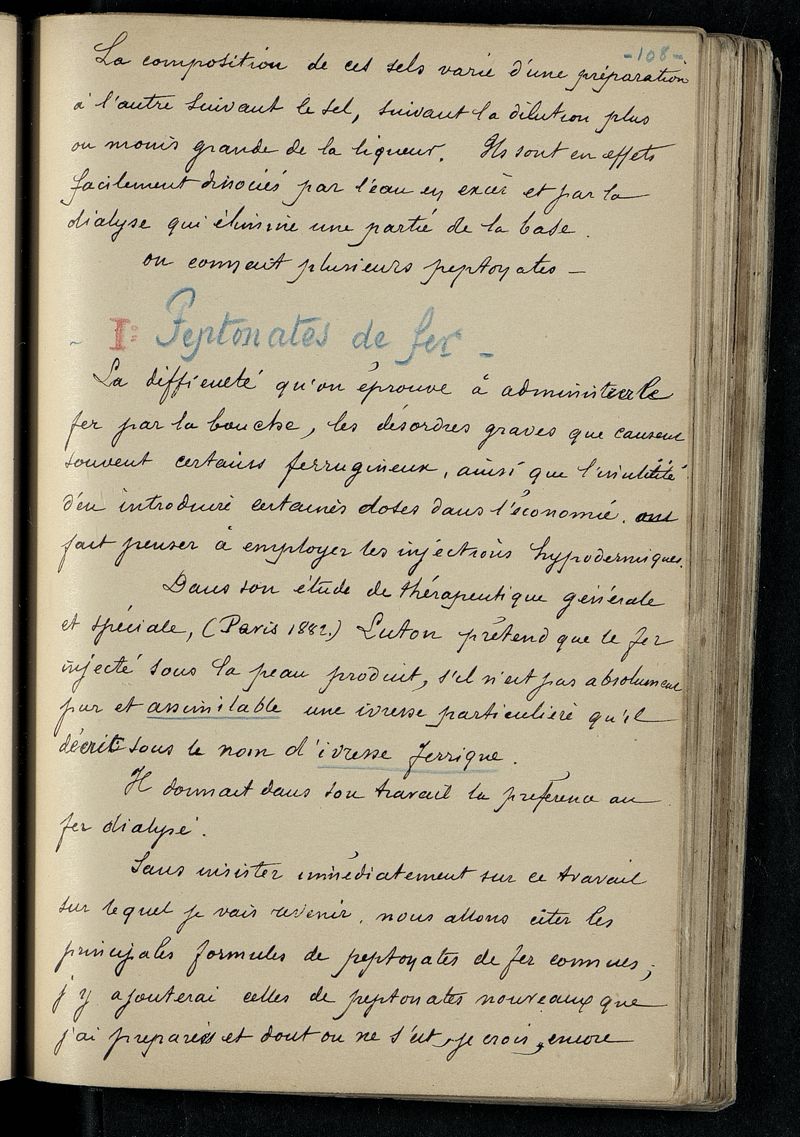 -108-
La composition de ces sels varie d'une préparation
à l'autre suivant le sel, suivant la dilution plus
ou moins grande de la liqueur. Ils sont en effets
facilement dissociés par l'eau en excès et par la
dialyse qui élimine une partie de la base.
on connait plusieurs peptonates -
- I: Peptonates de fer -
La difficulté qu'on éprouve à administrer le
fer par la bouche, les désordres graves que causent
souvent certains ferrugineux, ainsi que l'inutilité
d'en introduire certaines doses dans l'économie, ont
fait penser à employer les injections hypodermiques.
Dans son étude de thérapeutique générale
et spéciale, (Paris 1882.) Luton prétend que le fer
injecté sous la peau produit, s'il n'est pas absolument
pur et assimilable une ivresse particulière qu'il
décrit sous le nom d'ivresse ferrique.
Il donnait dans son travail la préférence au
fer dialysé.
Sans insister immédiatement sur ce travail
sur lequel je vais revenir, nous allons citer les
principales formules de peptonates de fer connues;
j'y ajouterai celles de peptonates nouveaux que
j'ai preparés et dont on ne s'est, je crois, encore